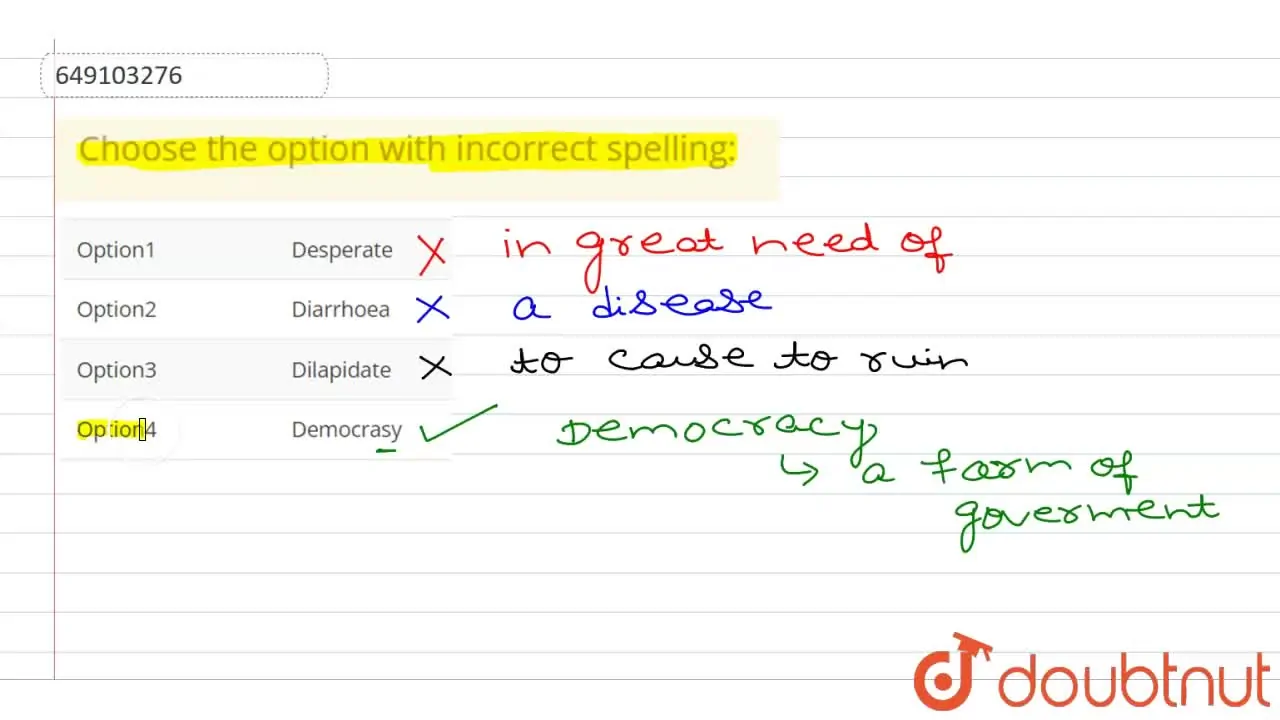 649103276
Choose the option with incorrect spelling:
Option1 Desperate X in great need of
Option2 Diarrhoea X a disease
Option3 Dilapidate X to cause to ruin
Option4 Democrasy ✓ Democracy
↳ a form of
goverment
doubtnut